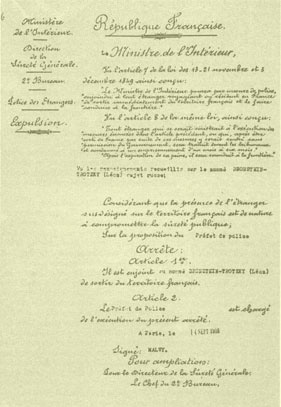 Ministère
de l'Intérieur.
Direction
de la
Sûreté Générale.
2e Bureau.
Police des Etrangers.
Expulsion.
République Française.
Le Ministre de l'Intérieur,
Vu l'article 7 de la loi des 13-21 novembre et 3
décembre 1849 ainsi conçu:
"Le Ministre de l'Intérieur pourra, par mesure de police,
enjoindre à tout étranger voyageant ou résidant en France
de sortir immédiatement du territoire français et le faire
conduire à la frontière."
Vu l'article 8 de la même loi, ainsi conçu:
"Tout étranger qui se serait soustrait à l'exécution des
mesures énoncées dans l'article précédent, ou qui, après être
sorti de France par suite de ces mesures, y serait rentré sans
permission du Gouvernement, sera traduit devant les tribunaux
et condamné à un emprisonnement d'un mois à six mois.
Après l'expiration de sa peine, il sera reconduit à la frontière."
Vu les renseignements recueillis sur le nommé BRONSTEIN-
TROTSKY (Léon) sujet russe;
Considérant que la présence de l'étranger
susdésigné sur le territoire français est de nature
à compromettre la sûreté publique;
Sur la proposition du Préfet de police
Arrête:
Article 1er
Il est enjoint au nommé BRONSTEIN-TROTSKY (Léon)
de sortir du territoire français.
Article 2.
Le Préfet de Police est chargé
de l'exécution du présent arrêté.
A Paris, le
Signé: MALVY.
Pour ampliation:
Sous le Directeur de la Sûreté Générale:
Le Chef du 2e Bureau.